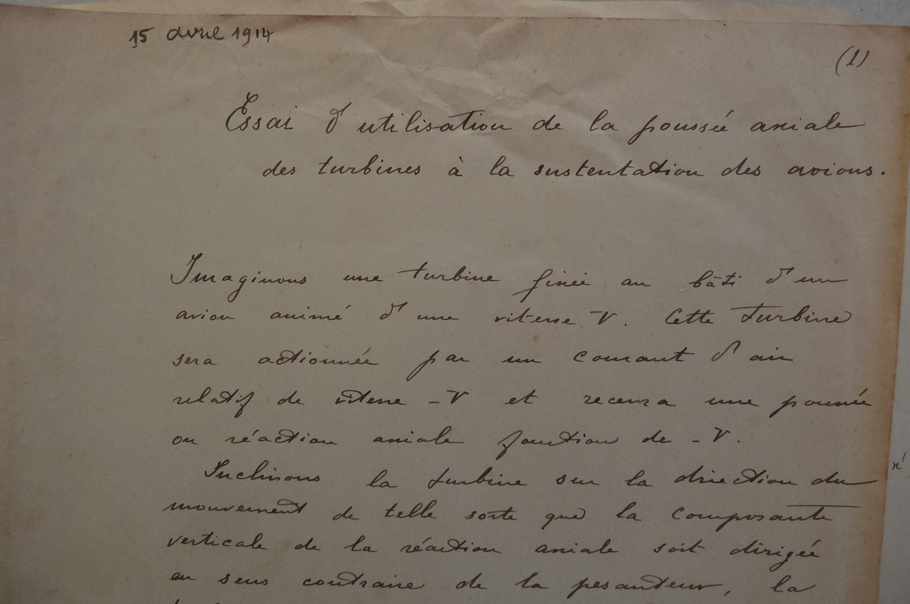 15 avril 1914
(1)
Essai d'utilisation de la poussée axiale
des turbines à la sustentation des avions.
Imaginons une turbine fixée au bâti d'un
avion animé d'une vitesse V. Cette turbine
sera actionnée par un courant d'air
relatif de vitesse -V et recevra une poussée
ou réaction axiale fonction de -V.
Inclinons la turbine sur la direction du
mouvement de telle sorte que la composante
verticale de la réaction axiale soit dirigée
en sens contraire de la pesanteur, la